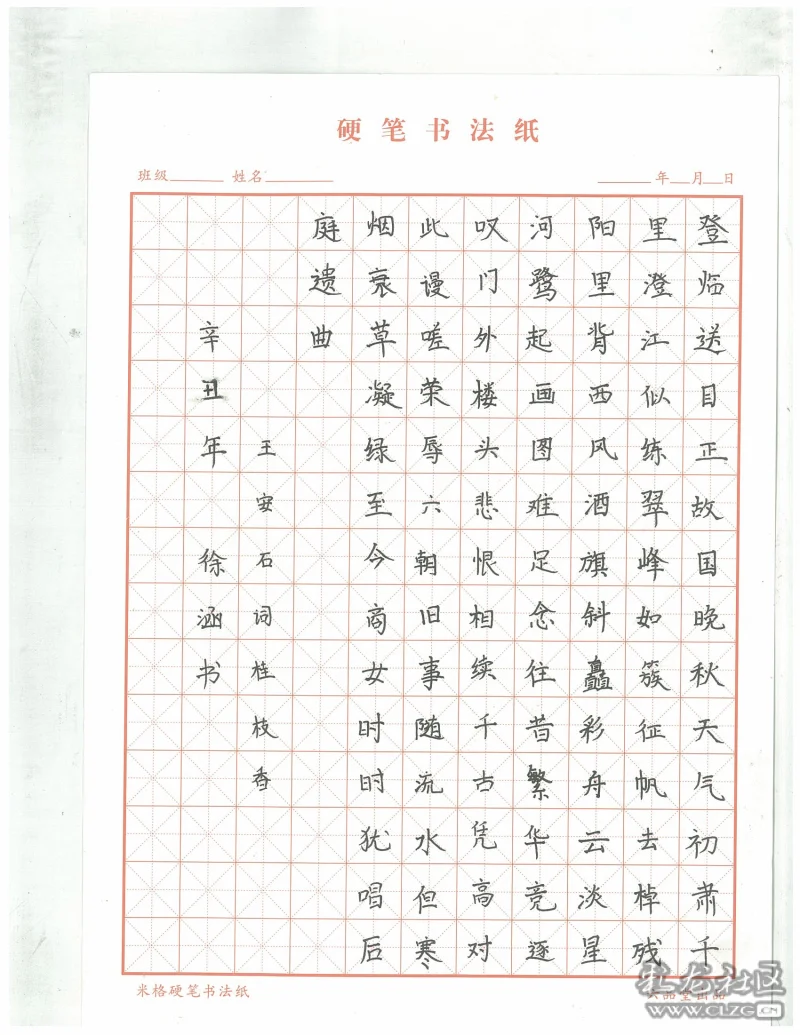 硬笔书法纸
班级 姓名 年 月 日
登临送目正故国晚秋天气初肃千
里澄江似练翠峰如簇征帆去棹残
阳里背西风酒旗斜矗彩舟云淡星
河鹭起画图难足念往昔繁华竞逐
叹门外楼头悲恨相续千古凭高对
此谩嗟荣辱六朝旧事随流水但寒
烟衰草凝绿至今商女时时犹唱后
庭遗曲
王安石词桂枝香
辛丑年 徐涵书
米格硬笔书法纸
扎龙社区
WWW.CLZC.CN